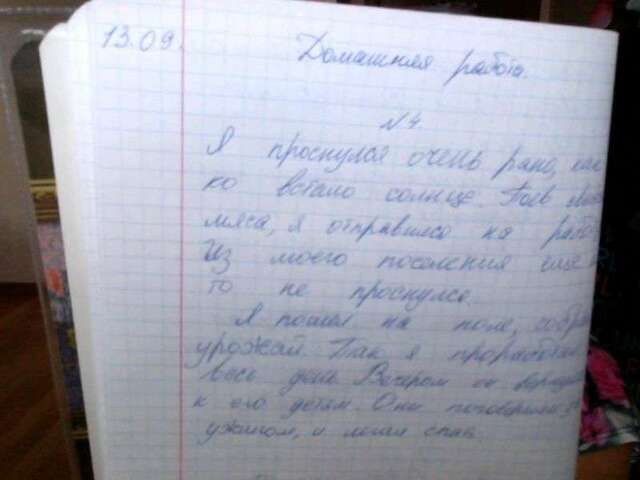 13.09.
Домашняя работа.
№4.
Я проснулся очень рано, как
ко встало солнце. Поев
мяса, я отправился на рабо
Из моего поселения ещё
то не проснулся.
Я пошел на поле, собра
урожай. Так я проработал
весь день. Вечером он верну
к его детям. Они поговорили
ужином, и легли спать.